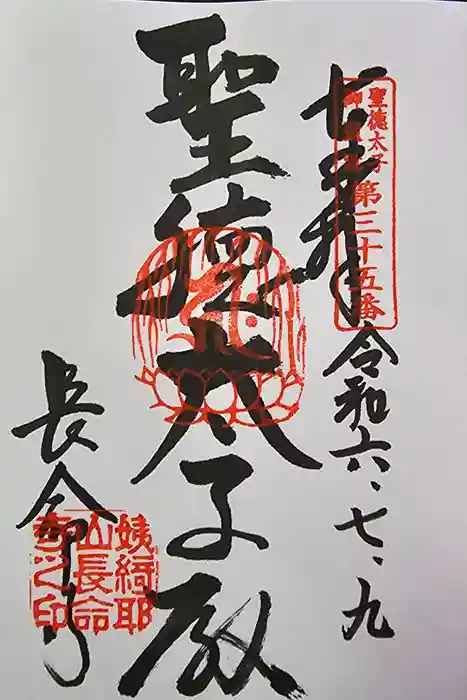 奉拝 令和六、七、九
聖徳太子
第三十五番
聖徳太子殿
長命寺
姨綺耶
山長命
寺之印